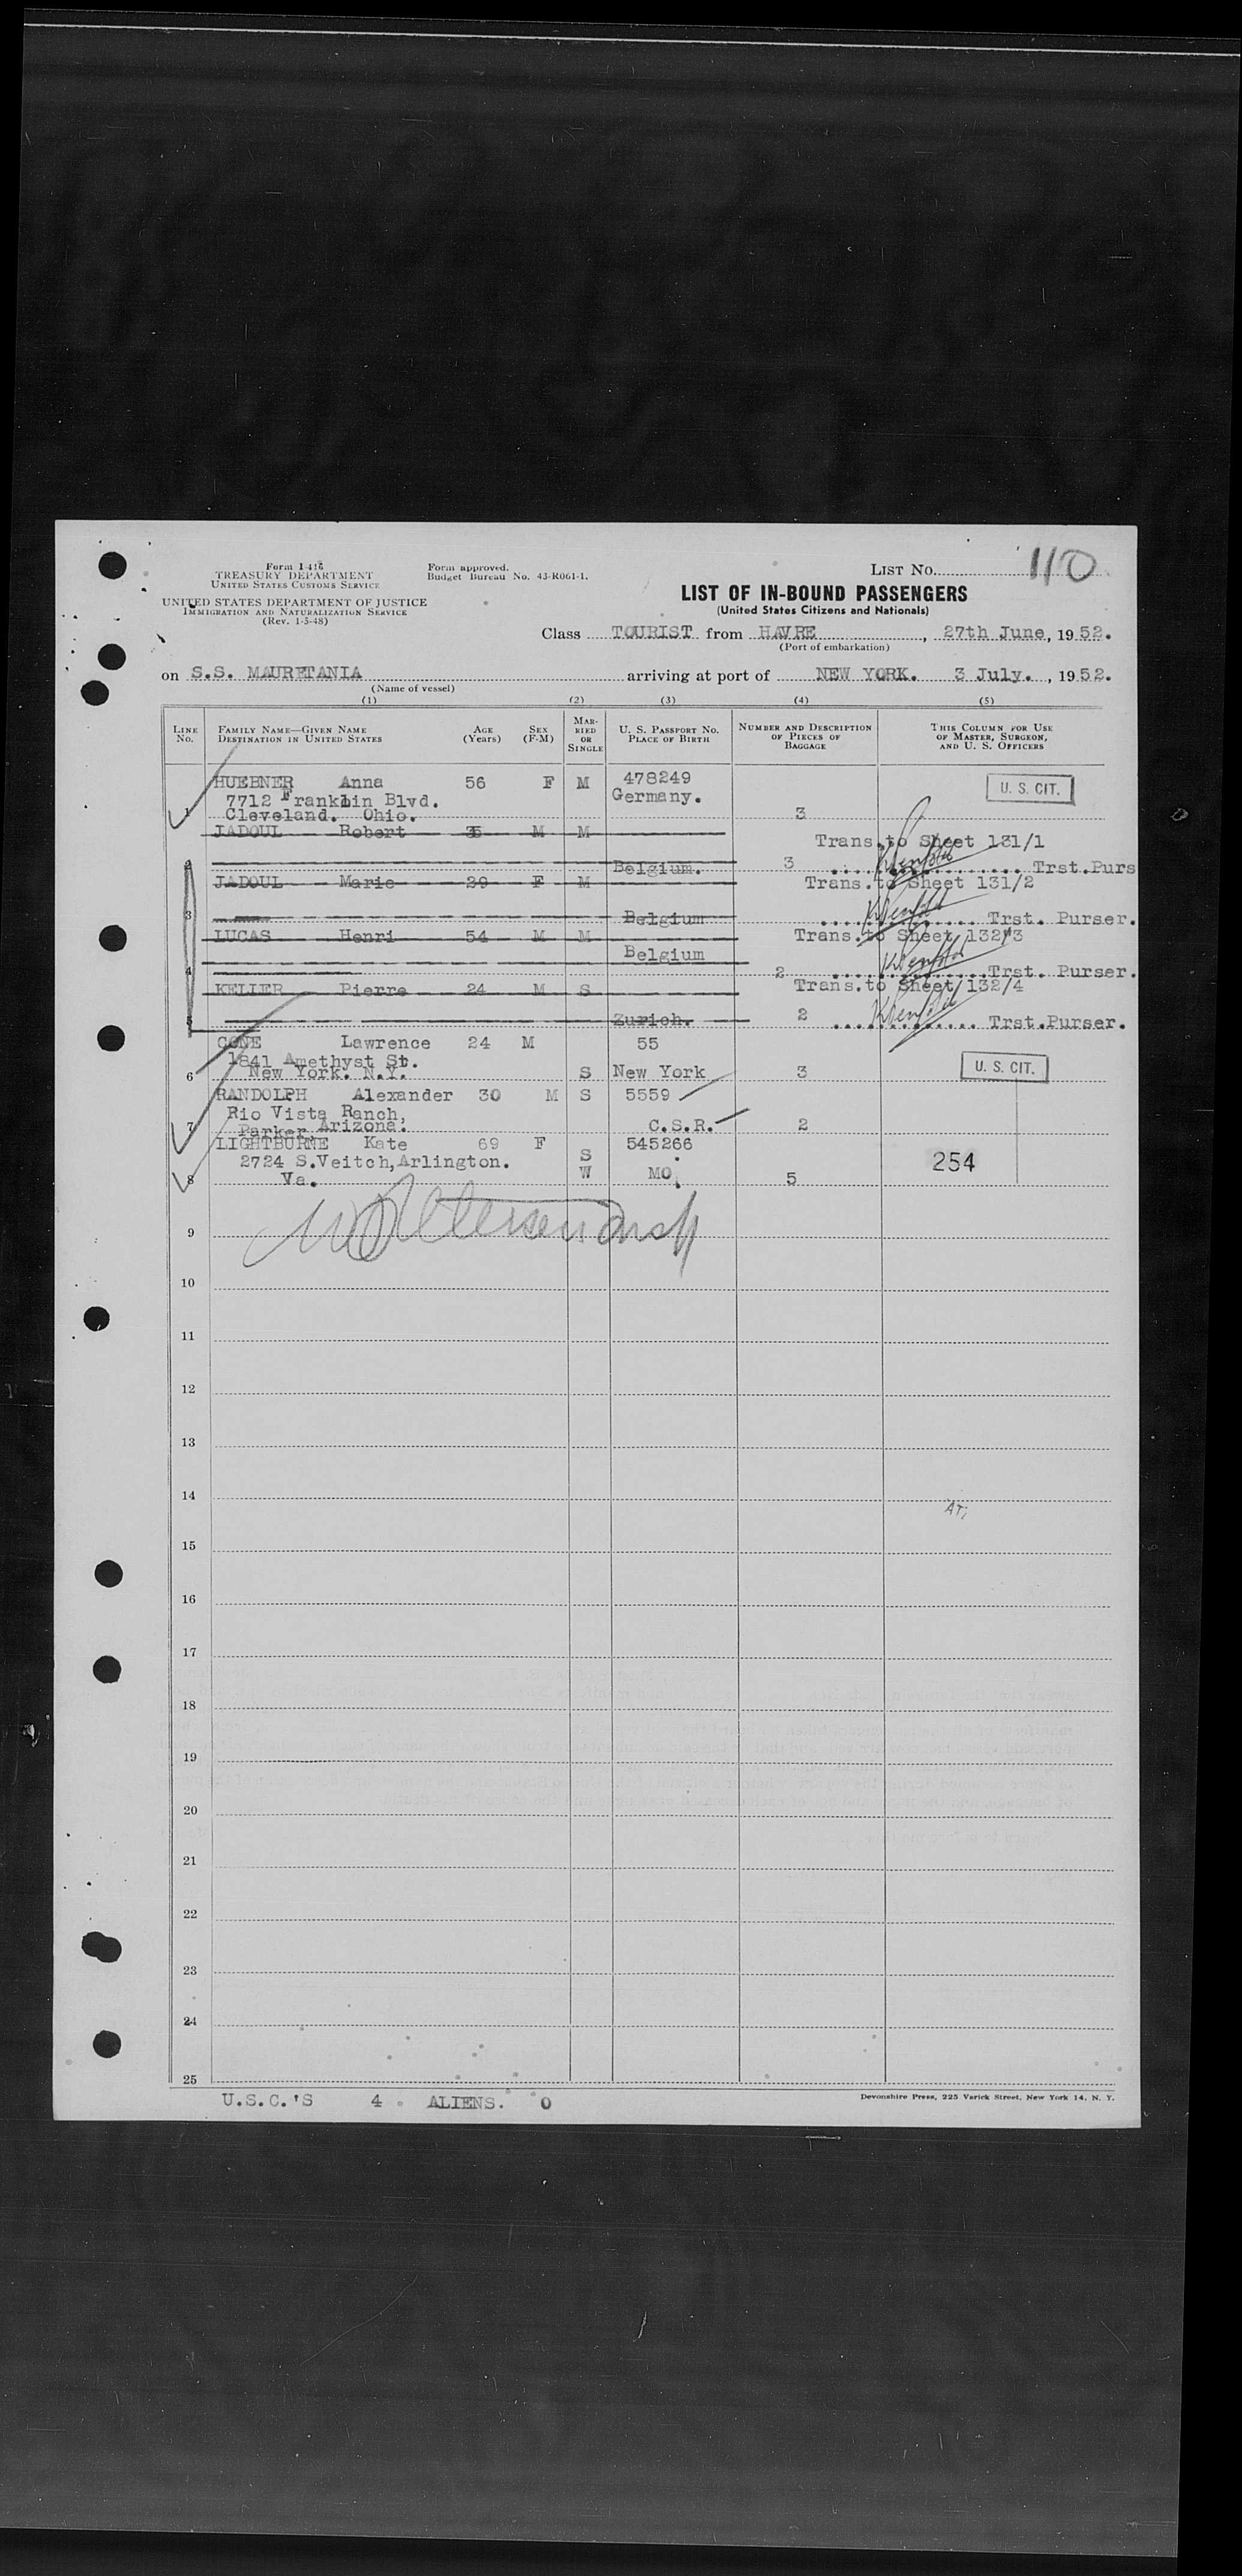 Form I-416
TREASURY DEPARTMENT
UNITED STATES CUSTOMS SERVICE
Form approved.
Budget Bureau No. 43-R061-1.
LIST No. 110
UNITED STATES DEPARTMENT OF JUSTICE
IMMIGRATION AND NATURALIZATION SERVICE
(Rev. 1-5-48)
LIST OF IN-BOUND PASSENGERS
(United States Citizens and Nationals)
Class TOURIST from HAVRE, 27th June, 1952.
(Port of embarkation)
on S.S. MAURETANIA arriving at port of NEW YORK. 3 July., 1952.
(Name of vessel)
(1) (2) (3) (4) (5)
LINE No. FAMILY NAME—GIVEN NAME DESTINATION IN UNITED STATES AGE (Years) SEX (F-M) MARRIED OR SINGLE U. S. PASSPORT No. PLACE OF BIRTH NUMBER AND DESCRIPTION OF PIECES OF BAGGAGE THIS COLUMN FOR USE OF MASTER, SURGEON, AND U. S. OFFICERS
HUEBNER Anna 56 F M 478249 U. S. CIT.
7712 Franklin Blvd. Germany.
1 Cleveland. Ohio. 3
JADOUL Robert 35 M M
Trans.to Sheet 131/1
2 Belgium. 3 Trst.Purs
JADOUL Marie 29 F M Trans.to Sheet 131/2
3 Belgium Trst. Purser.
LUCAS Henri 54 M M Trans.to Sheet 132/3
Belgium
4 2 Trst. Purser.
KELLER Pierre 24 M S Trans.to Sheet 132/4
5 Zurich. 2 Trst.Purser.
CONE Lawrence 24 M 55
1841 Amethyst St. U. S. CIT.
6 New York. N.Y. S New York 3
RANDOLPH Alexander 30 M S 5559
Rio Vista Ranch,
7 Parker, Arizona. C.S.R. 2
LIGHTBURNE Kate 69 F 545266
2724 S.Veitch,Arlington. S 254
8 Va. W MO. 5
9
10
11
12
13
14
AT;
15
16
17
18
19
20
21
22
23
24
25
U.S.C.'S 4 ALIENS. 0
Devonshire Press, 225 Varick Street, New York 14, N. Y.